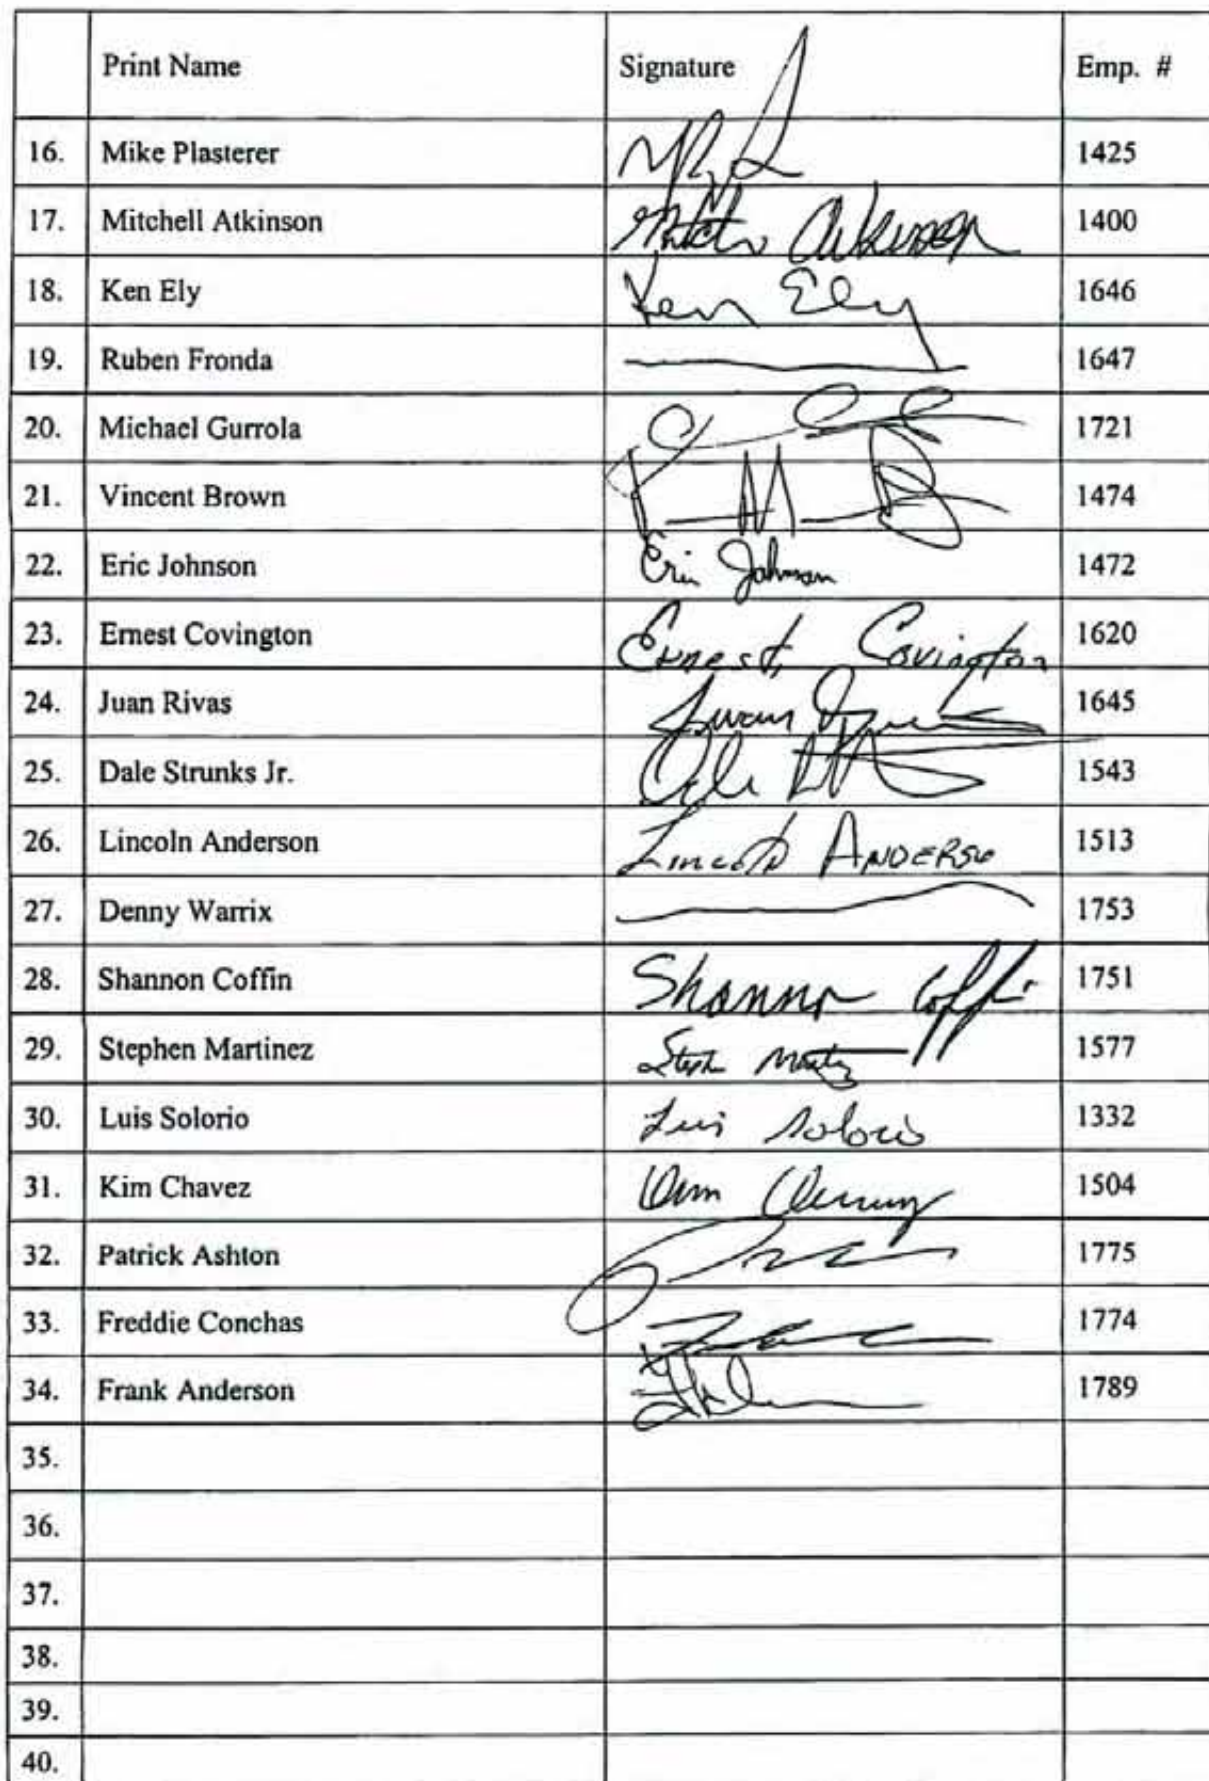 Print Name Signature Emp. #
16. Mike Plasterer 1425
17. Mitchell Atkinson Atkinson 1400
18. Ken Ely Ken Ely 1646
19. Ruben Fronda 1647
20. Michael Gurrola 1721
21. Vincent Brown 1474
22. Eric Johnson Eric Johnson 1472
23. Ernest Covington Ernest Covington 1620
24. Juan Rivas Juan 1645
25. Dale Strunks Jr. Dale 1543
26. Lincoln Anderson Lincoln ANDERSO 1513
27. Denny Warrix 1753
28. Shannon Coffin Shannon Coffin 1751
29. Stephen Martinez 1577
30. Luis Solorio Luis Solorio 1332
31. Kim Chavez Kim 1504
32. Patrick Ashton 1775
33. Freddie Conchas 1774
34. Frank Anderson 1789
35.
36.
37.
38.
39.
40.